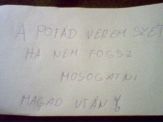 A POFÁD VEREM SZÉT
HA NEM FOGSZ
MOSOGATNI
MAGAD UTÁN